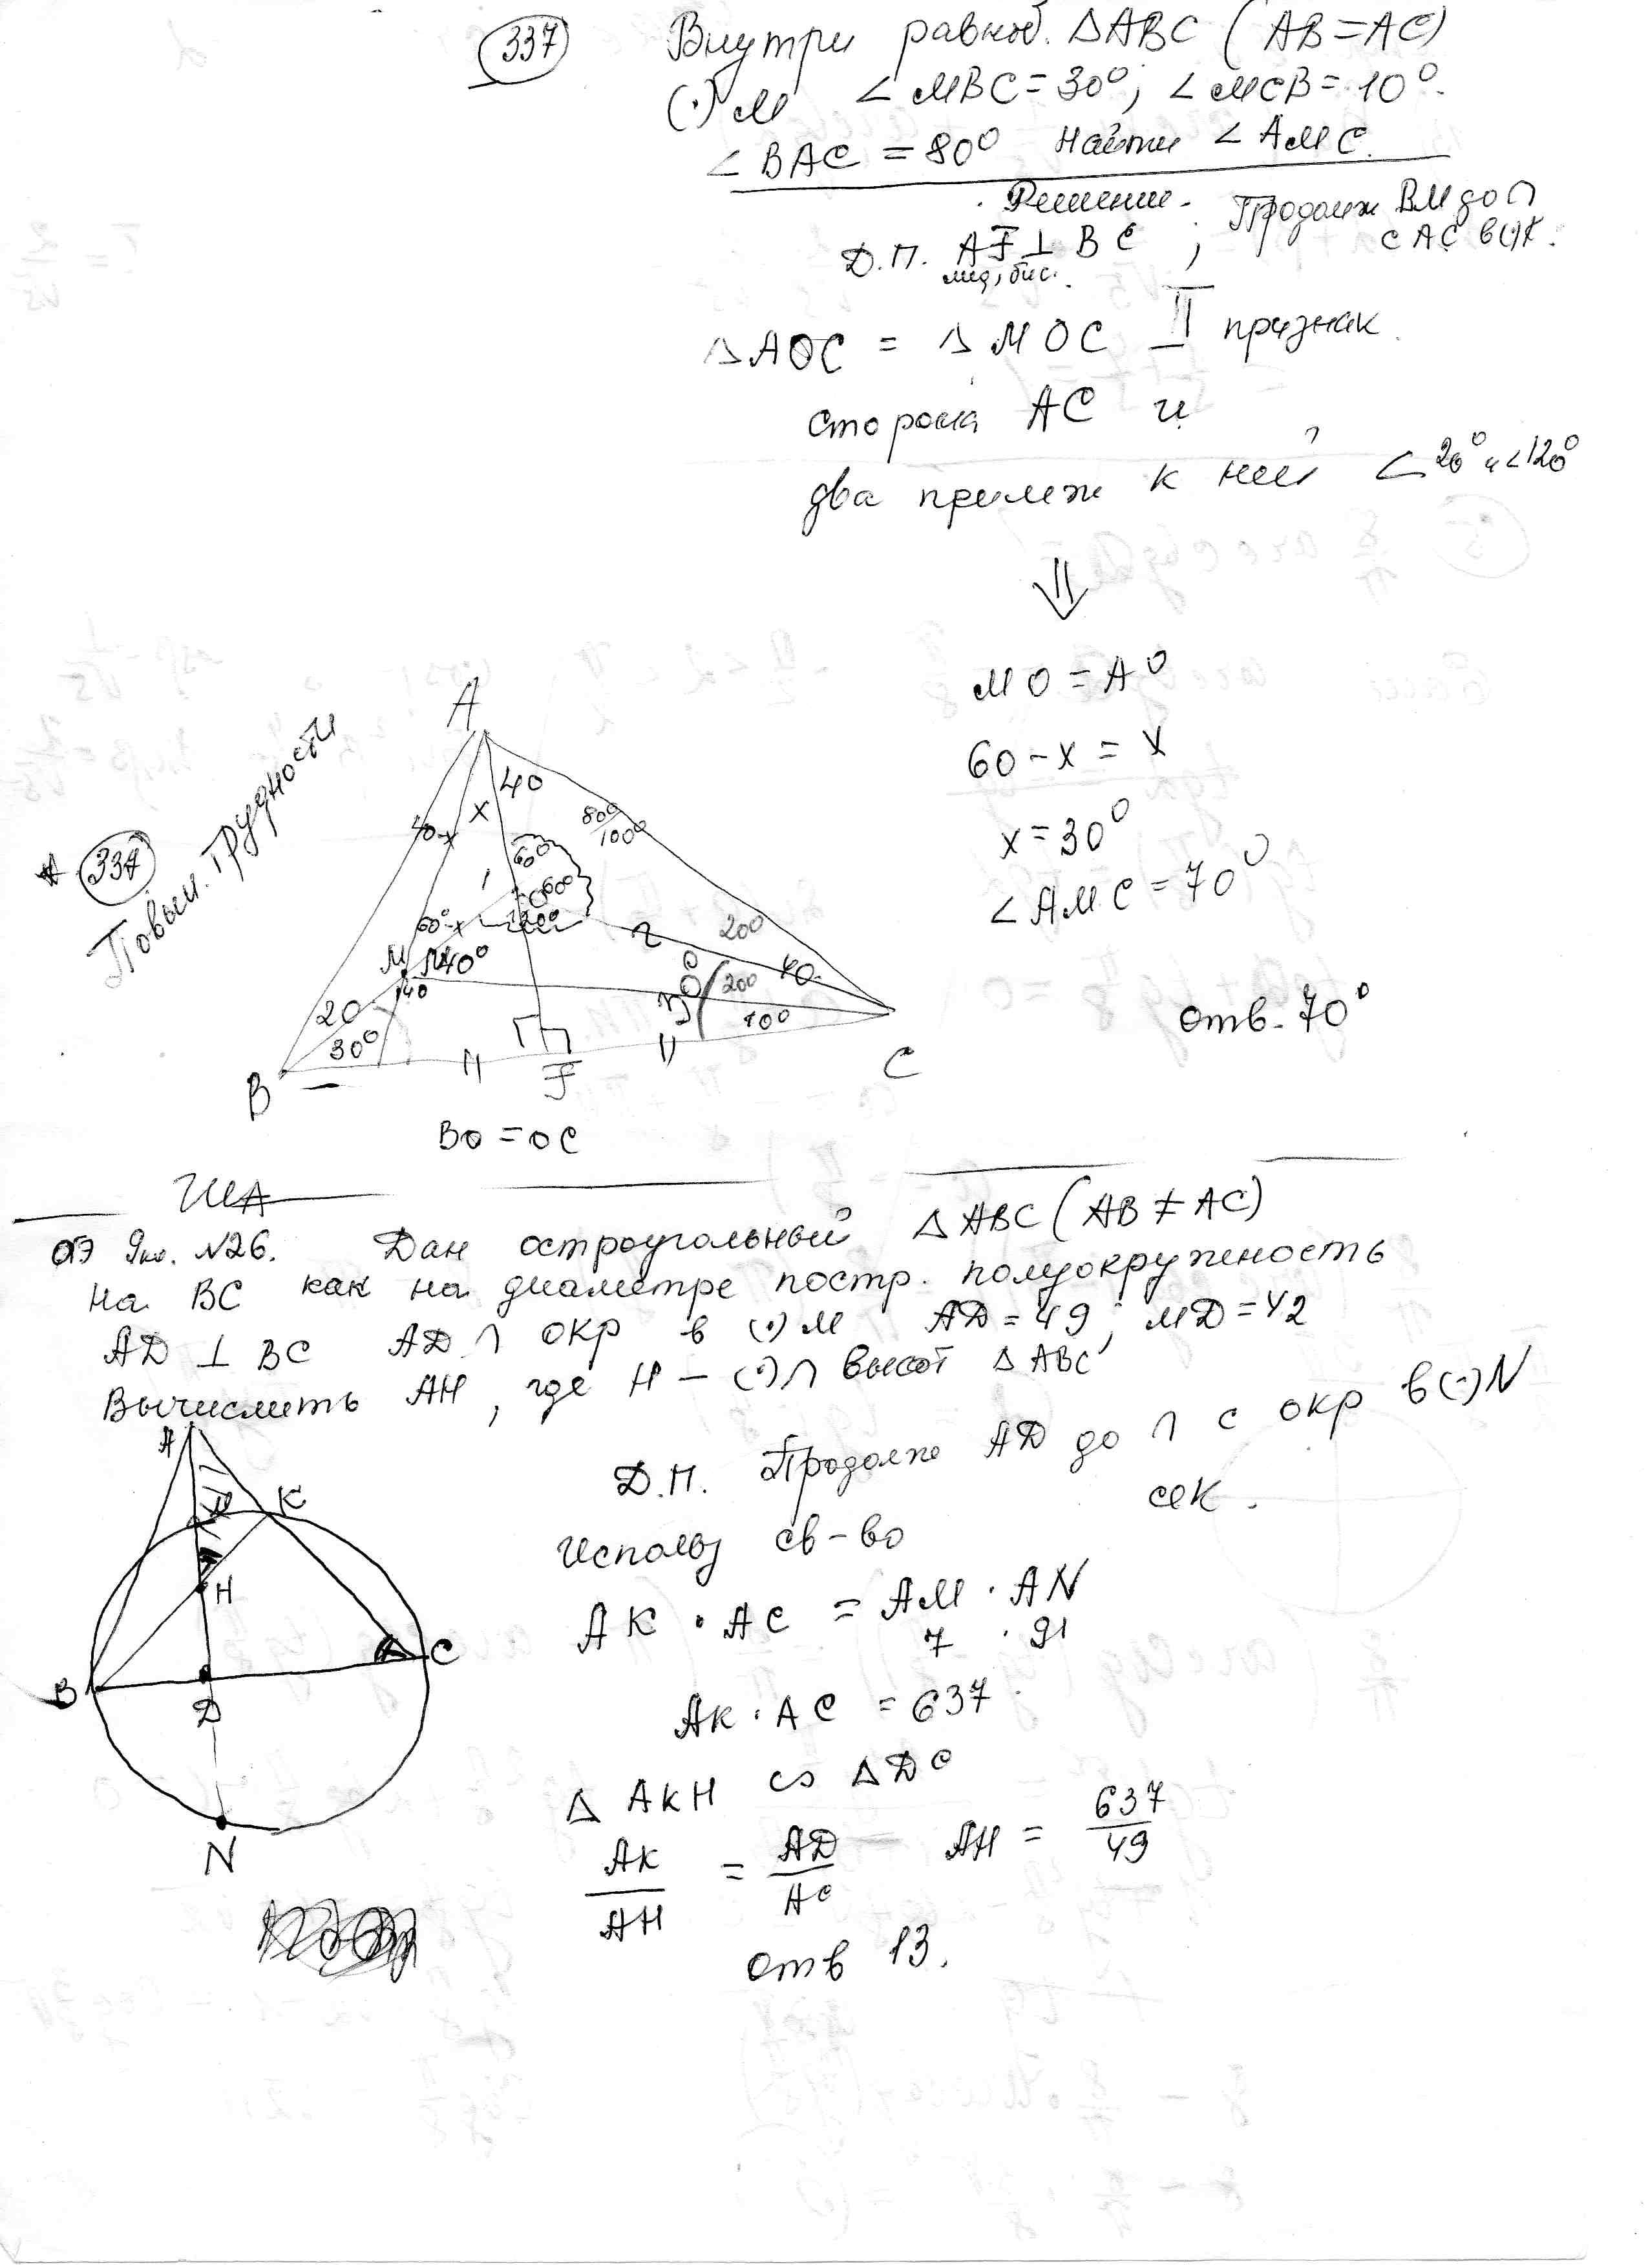 337
Внутри равноб. △ABC (AB=AC)
(·) M ∠MBC=30°; ∠MCB=10°.
∠BAC=80° Найти ∠AMC.
Решение.
Д.П. AF⊥BC ; Продолж BM до ∩
мед, бис. с AC в (·)K.
△AOC = △MOC II признак.
сторона AC и
два прилеж к ней ∠20° и ∠120°
⇓
MO = AO
60-x = x
x=30°
∠AMC = 70°
Отв. 70°
337
Повыш. трудности
A
40
x
40-x
80°
100°
60°
60°
120°
60°-x
20°
40
M
40°
140
20
30°
20°
10°
B
F
C
BO = OC
ОГЭ 9кл. №26. Дан остроугольный △ABC (AB≠AC)
На BC как на диаметре постр. полуокружность
AD ⊥ BC AD ∩ окр в (·) M AD=49; MD=42
Вычислить AH, где H – (·)∩ высот △ABC
Д.П. Продолж AD до ∩ с окр в (·)N
сек.
Использ св-во
AK · AC = AM · AN
7 · 91
AK · AC = 637
△AKH ∽ △DC
AK/AH = AD/AC AH = 637/49
отв 13.
A
M
K
H
B
D
C
N